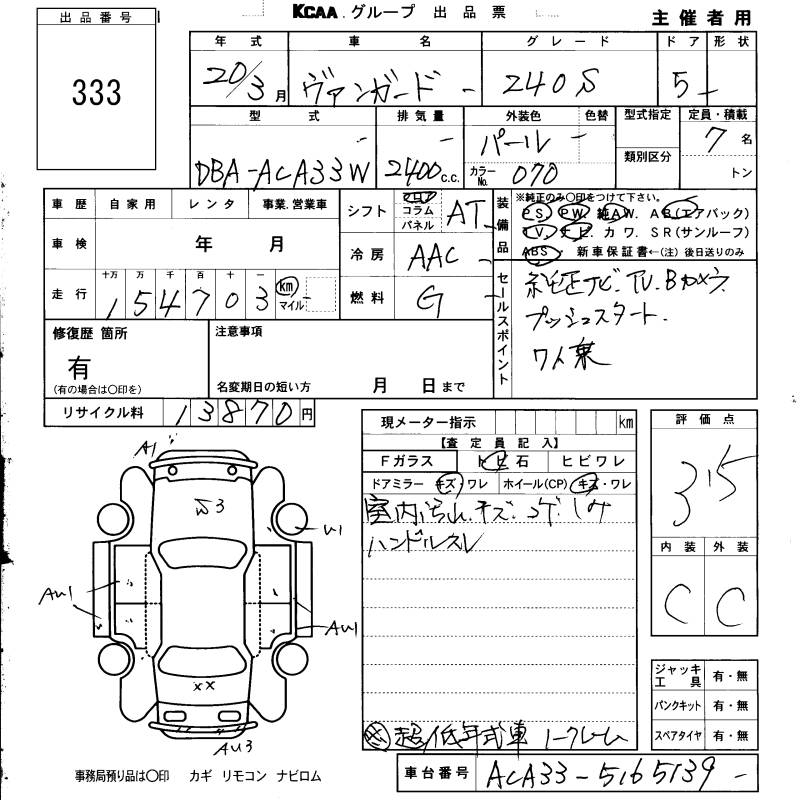 KCAA.グループ 出品票
主催者用
出品番号
333
年式 車名 グレード ドア 形状
20/3月 ヴァンガード - 240S 5 -
型式 排気量 外装色 色替 型式指定 定員・積載
DBA-ACA33W 2400c.c. パール - 7名
カラーNo. 070 類別区分 トン
車歴 自家用 レンタ 事業.営業車
シフト フロア コラム パネル AT
装備品
※純正のみ〇印をつけて下さい。
PS PW 純AW. AB(エアバック)
TV. ナビ カワ. SR(サンルーフ)
ABS 新車保証書←(注)後日送りのみ
車検 年 月
冷房 AAC
走行 十万 万 千 百 十 一
154703 km マイル
燃料 G
セールスポイント
純正ナビ.TV.Bカメラ
プッシュスタート.
7人乗
修復歴 箇所
有
(有の場合は〇印を)
注意事項
名変期日の短い方 月 日まで
リサイクル料 13870円
現メーター指示 km
【査定員記入】
Fガラス トビ石 ヒビワレ
ドアミラー キズ ワレ ホイール(CP) キズ・ワレ
室内汚れ.キズ.コゲ.シミ
ハンドルスレ
評価点
3.5
内装 外装
C C
A1
W3
U1
AU1
AU1
XX
AU3
ジャッキ工具 有・無
パンクキット 有・無
スペアタイヤ 有・無
超低年式車 ノークレーム
事務局預り品は〇印 カギ リモコン ナビロム
車台番号 ACA33-5165139 -